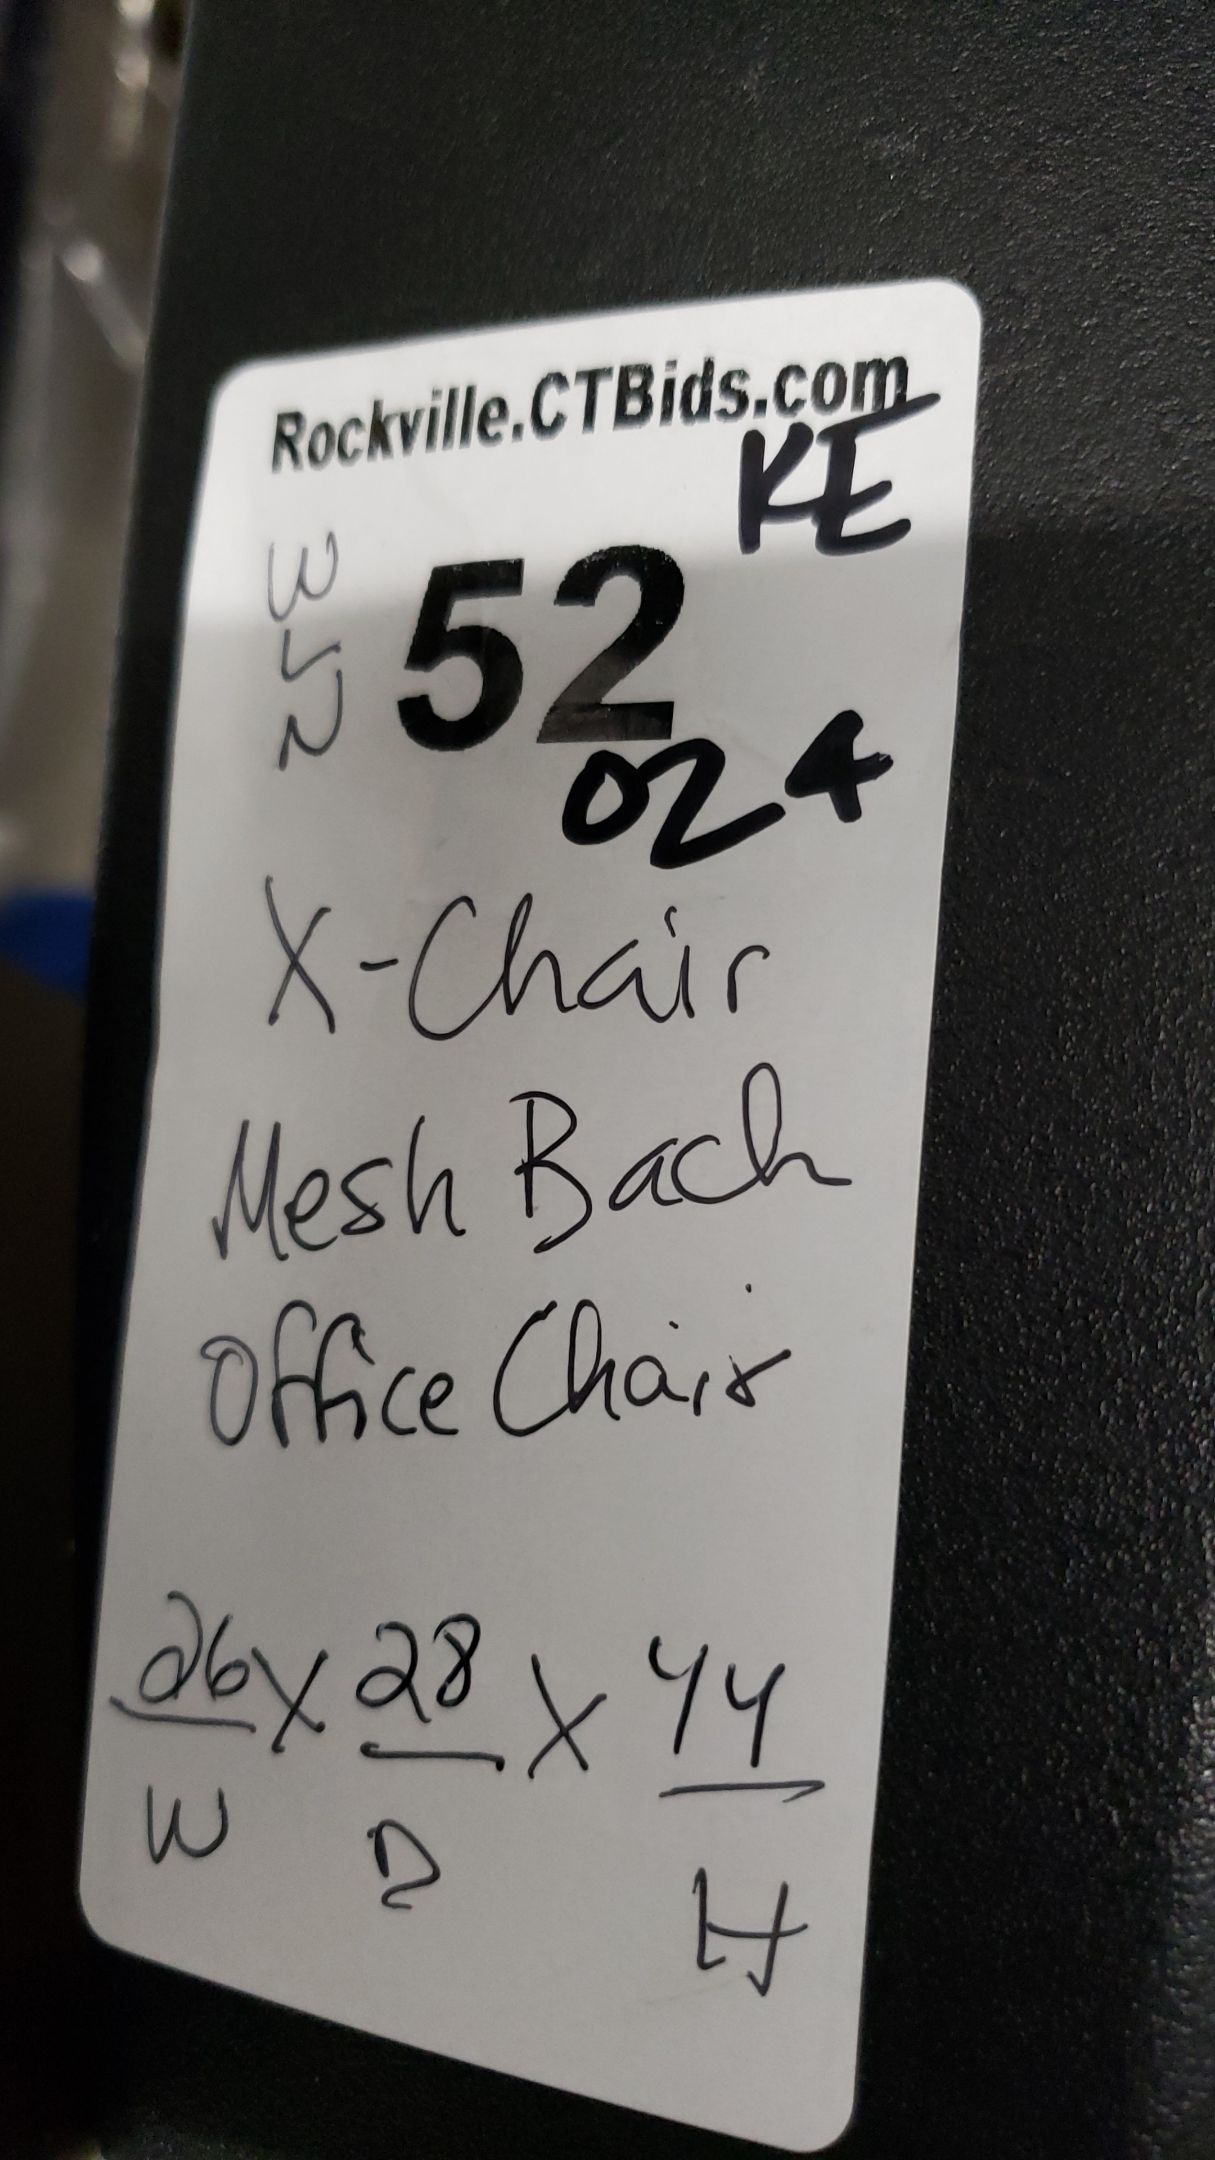 Rockville.CTBids.com
KE
52
024
X-Chair
Mesh Back
Office Chair
26 X 28 X 44
W D H